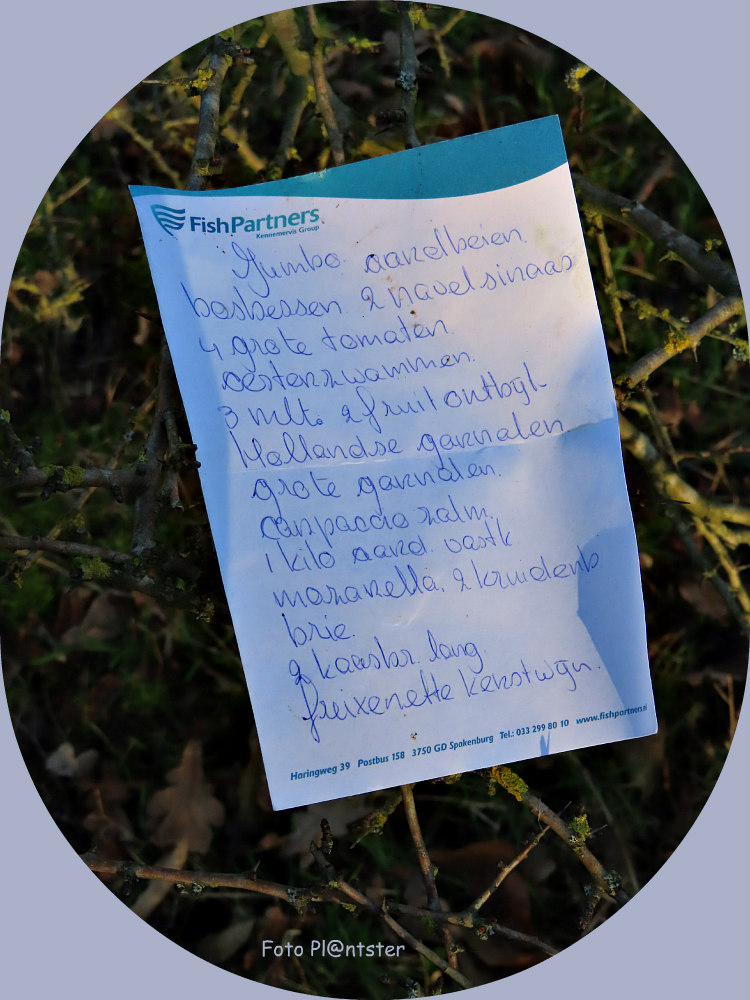 FishPartners
Kennemervis Group
Jumbo aardbeien
bosbessen 2 navelsinaas
4 grote tomaten
oesterzwammen.
3 mlk. 2 fruitontbijt
Hollandse garnalen
grote garnalen.
carpaccio zalm.
1 kilo aard. vastk
mozarella. 2 kruidenb
brie.
2 kaasbr. lang
freixenette kerstwijn.
Haringweg 39 Postbus 158 3750 GD Spakenburg Tel.: 033 299 80 10 www.fishpartners.nl
Foto Pl@ntster